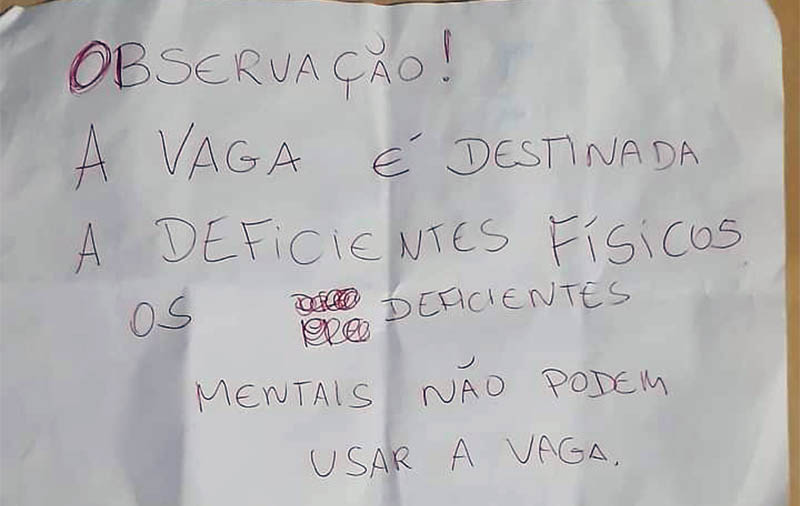 OBSERVAÇÃO!
A VAGA É DESTINADA
A DEFICIENTES FÍSICOS
OS DEFICIENTES
MENTAIS NÃO PODEM
USAR A VAGA.